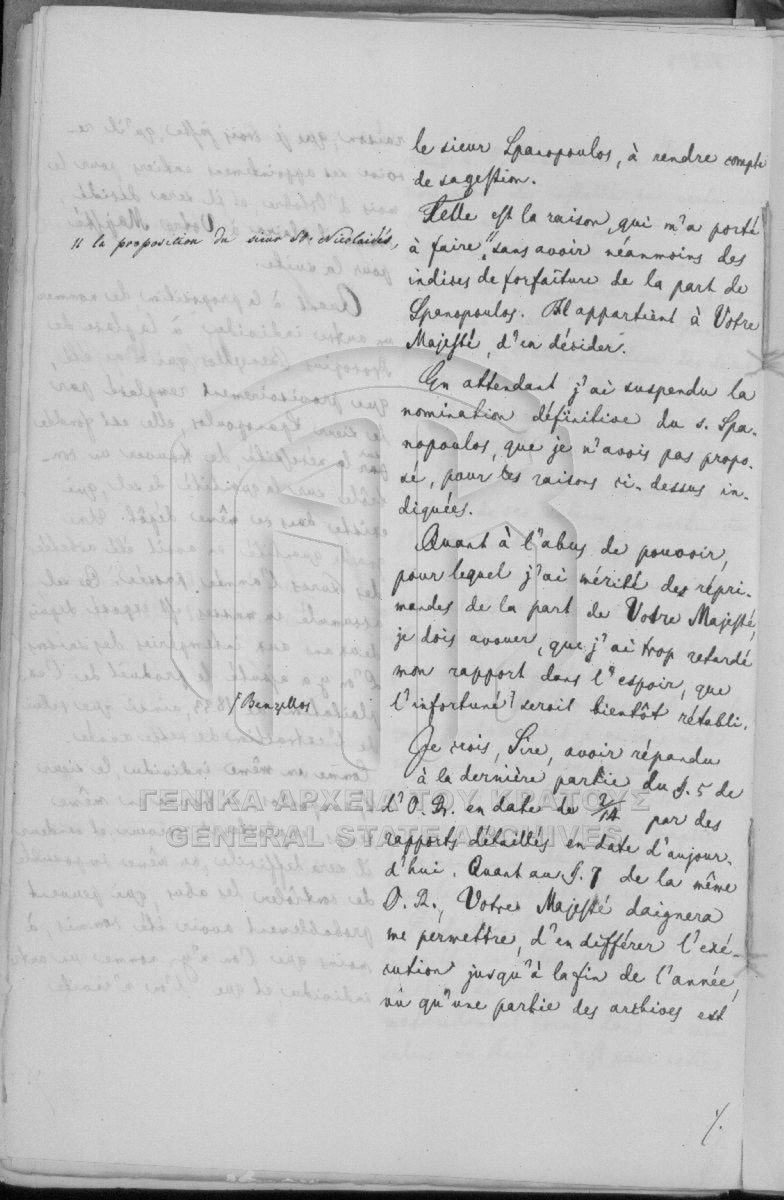 le sieur Spanopoulos, à rendre compte
de sa gestion.
Telle est la raison, qui m'a porté
à faire " sans avoir néanmoins des
" la proposition du sieur St. Nicolaïdès,
indises de forfaiture de la part de
Spanopoulos. Il appartient à Votre
Majesté, d'en décider.
En attendant j'ai suspendu la
nomination définitive du s. Spa-
nopoulos, que je n'avois pas propo-
sé, pour les raisons ci-dessus in-
diquées.
Quant à l'abus de pouvoir,
pour lequel j'ai mérité des répri-
mandes de la part de Votre Majesté,
je dois avouer, que j'ai trop retardé
mon rapport dans l'espoir, que
l'infortuné / seroit bientôt rétabli.
/ Benzellos
Je crois, Sire, avoir répondu
à la dernière partie du §. 5 de
l'O. R. en date de 2/14 par des
rapports détaillés en date d'aujour-
d'hui. Quant au §. 7 de la même
O. R., Votre Majesté daignera
me permettre, d'en différer l'exé-
cution jusqu'à la fin de l'année,
vu qu'une partie des archives est
/.
ΓΕΝΙΚΑ ΑΡΧΕΙΑ ΤΟΥ ΚΡΑΤΟΥΣ
GENERAL STATE ARCHIVES